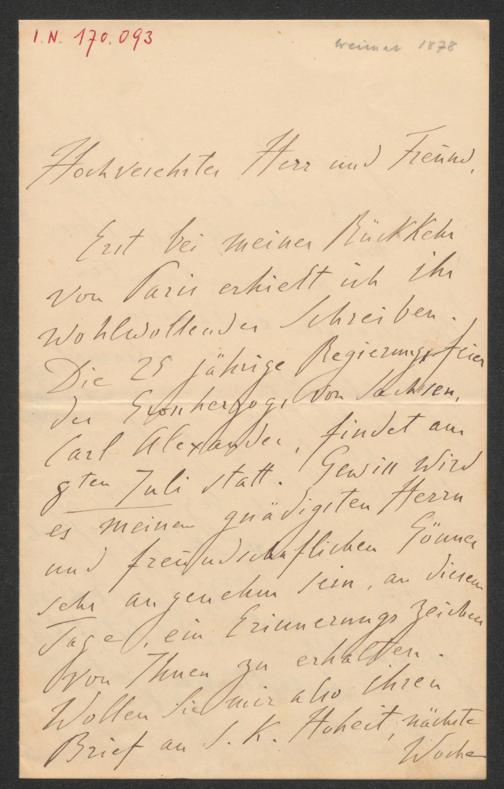 I.N. 170.093
Weimar 1878
Hochverehrter Herr und Freund,
Erst bei meiner Rückkehr
von Paris erhielt ich Ihr
wohlwollendes Schreiben.
Die 25 jährige Regierungsfeier
des Grossherzogs von Sachsen,
Carl Alexander, findet am
8ten Juli statt. Gewiss wird
es meinem gnädigsten Herrn
und freundschaftlichen Gönner
sehr angenehm sein, an diesem
Tage, ein Erinnerungs Zeichen
von Ihnen zu erhalten.
Wollen Sie mir also Ihren
Brief an S. K. Hoheit, nächste
Woche